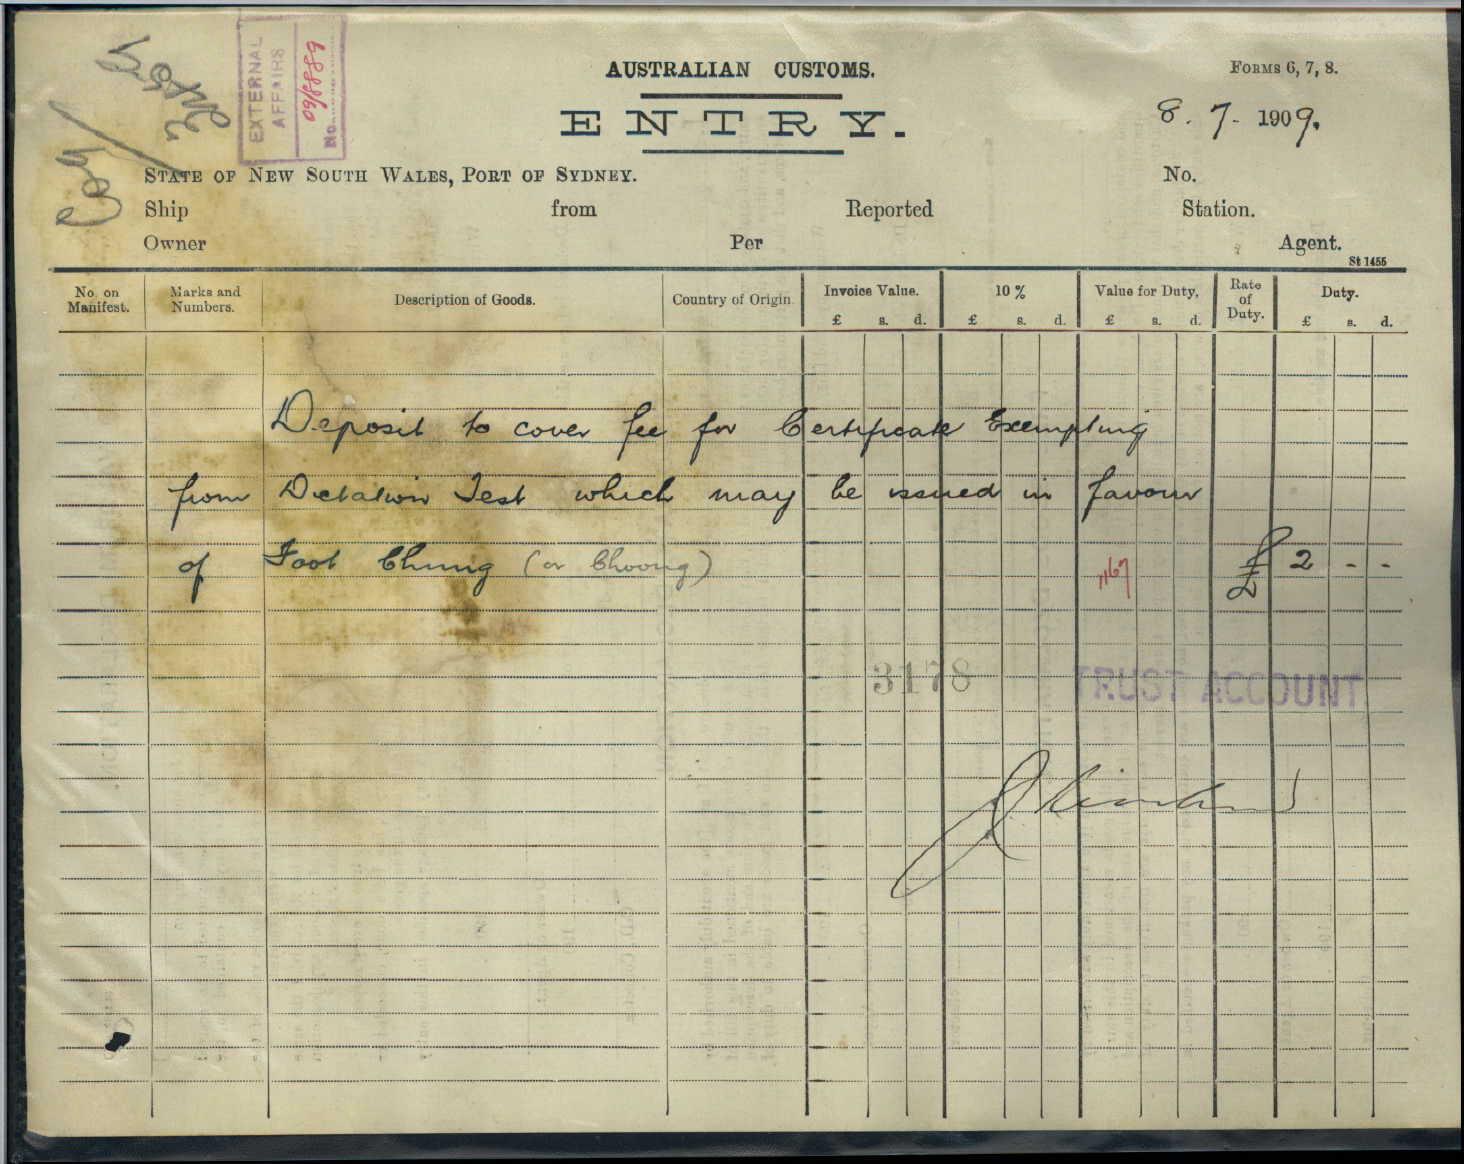 EXTERNAL
AFFAIRS
No.
AUSTRALIAN CUSTOMS.
FORMS 6, 7, 8.
ENTRY.
8. 7. 1909.
STATE OF NEW SOUTH WALES, PORT OF SYDNEY.
No.
Ship from Reported Station.
Owner Per Agent.
St 1455
No. on Manifest. Marks and Numbers. Description of Goods. Country of Origin. Invoice Value. 10 % Value for Duty. Rate of Duty. Duty.
£ s. d. £ s. d. £ s. d. £ s. d.
Deposit to cover fee for Certificate Exempting
from Dictation Test which may be issued in favour
of Foot Chung (or Choong) £ 2 - -
3178
TRUST ACCOUNT